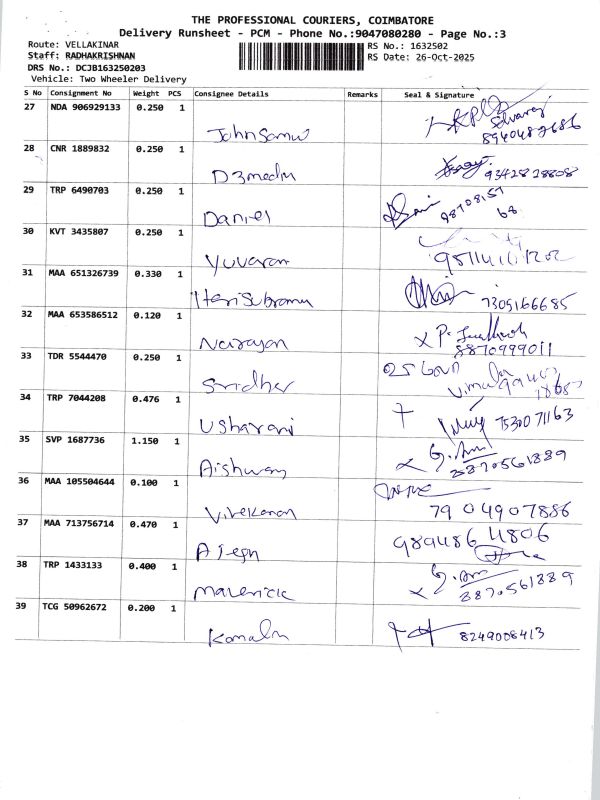 THE PROFESSIONAL COURIERS, COIMBATORE
Delivery Runsheet - PCM - Phone No.:9047080280 - Page No.:3
Route: VELLAKINAR
RS No.: 1632502
Staff: RADHAKRISHNAN
RS Date: 26-Oct-2025
DRS No.: DCJB163250203
Vehicle: Two Wheeler Delivery
S No Consignment No Weight PCS Consignee Details Remarks Seal & Signature
27 NDA 906929133 0.250 1
John Samu
8940487686
28 CNR 1889832 0.250 1
D3medu 9342828808
29 TRP 6490703 0.250 1
Daniel 98708157
68
30 KVT 3435807 0.250 1
Yuvaran
31 MAA 651326739 0.330 1
Hari Subramu 7305166685
32 MAA 653586512 0.120 1
Narayan 8870999011
33 TDR 5544470 0.250 1
Sridher Vimala
34 TRP 7044208 0.476 1
Usharani 7530071163
35 SVP 1687736 1.150 1
Aishwary 8870561889
36 MAA 105504644 0.100 1
Vivekanan 7904907886
37 MAA 713756714 0.470 1
Ajegn 9894864806
38 TRP 1433133 0.400 1
Maverick 8870561889
39 TCG 50962672 0.200 1
Komaln 8249008413